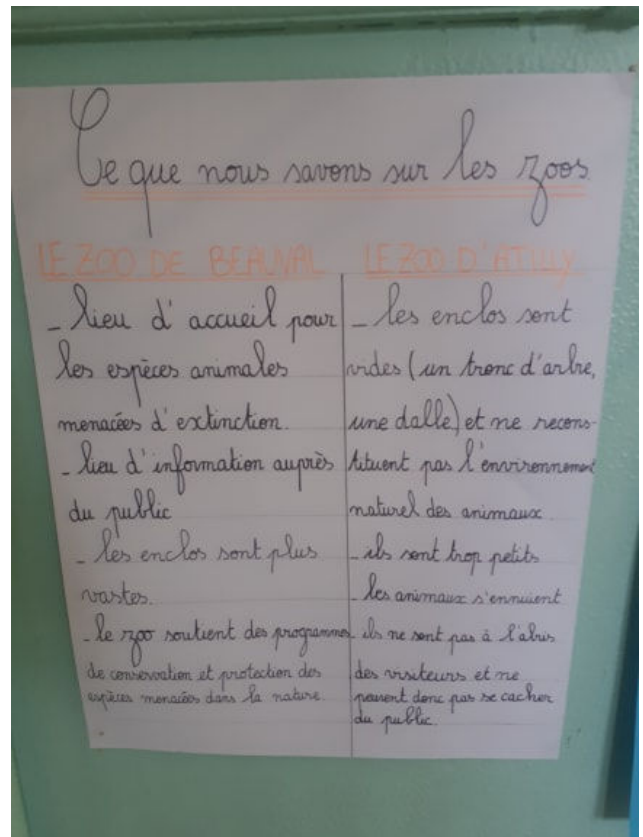 Ce que nous savons sur les zoos
LE ZOO DE BEAUVAL
_ lieu d'accueil pour
les espèces animales
menacées d'extinction.
_ lieu d'information auprès
du public
_ les enclos sont plus
vastes.
_ le zoo soutient des programmes
de conservation et protection des
espèces menacées dans la nature.
LE ZOO D'ATILLY
_ les enclos sont
vides (un tronc d'arbre,
une dalle) et ne recons-
tituent pas l'environnement
naturel des animaux
_ ils sont trop petits
_ les animaux s'ennuient
_ ils ne sont pas à l'abris
des visiteurs et ne
peuvent donc pas se cacher
du public.